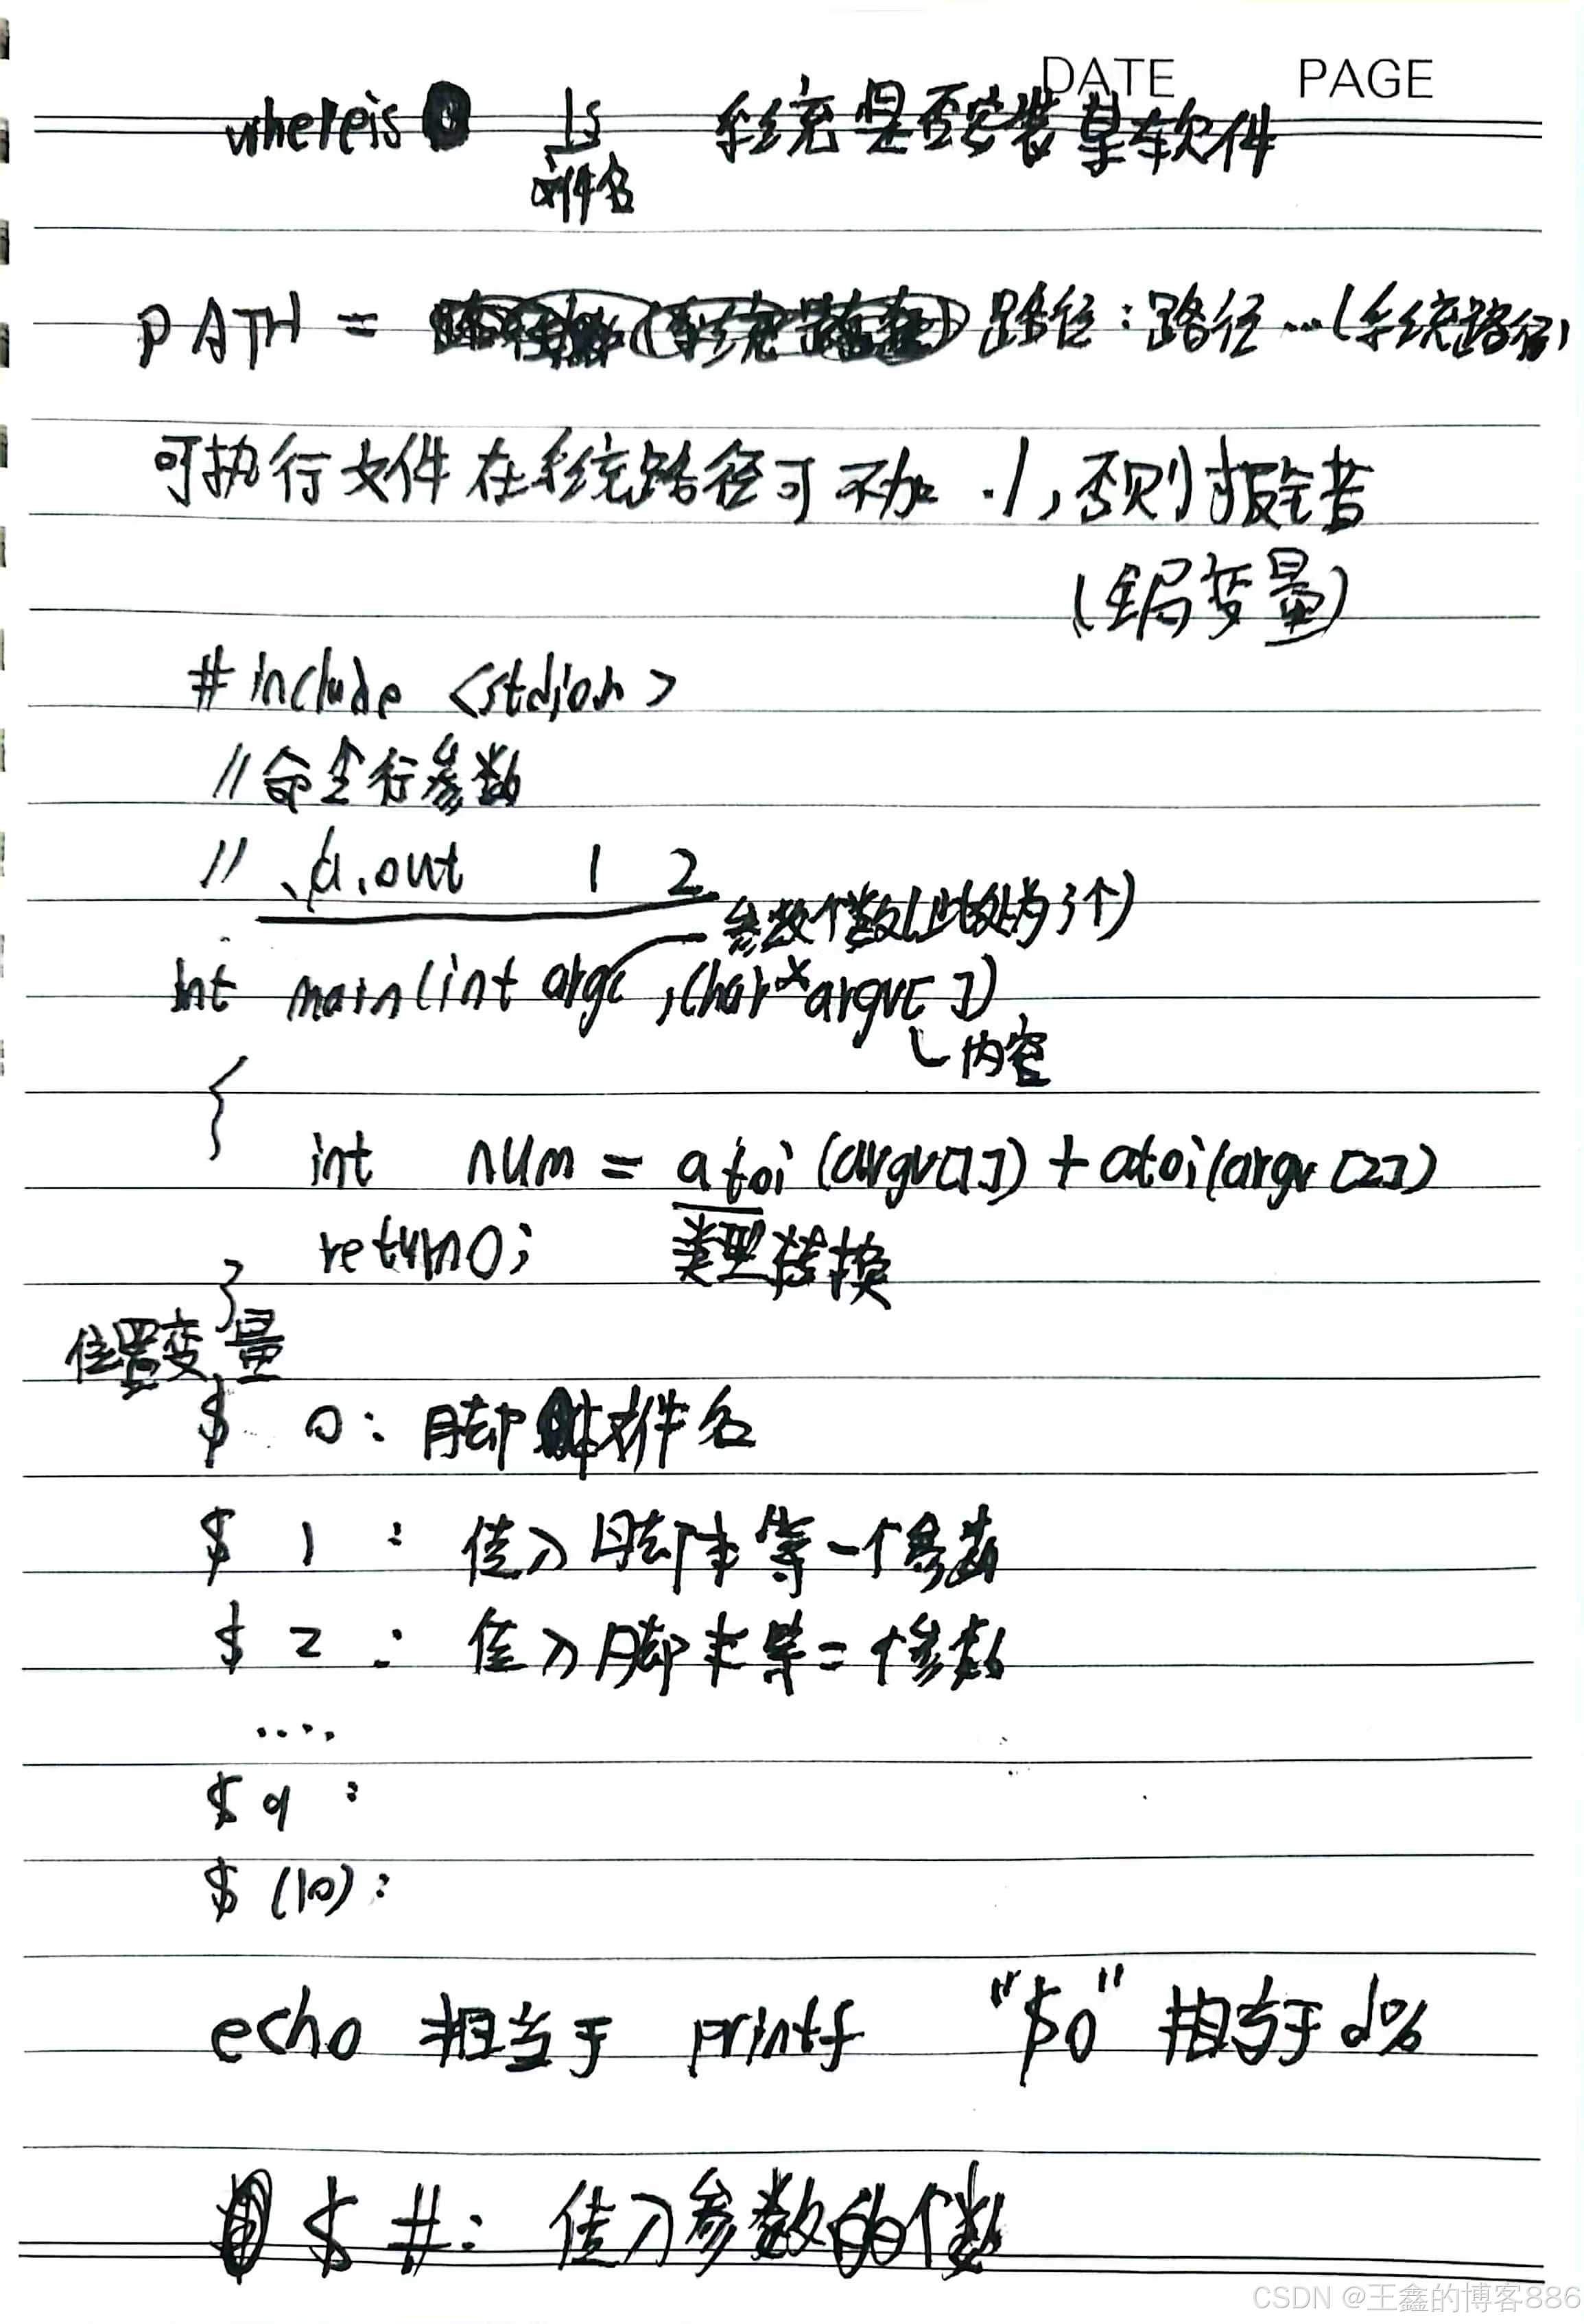 DATE PAGE
whereis ls 系统是否安装某软件
文件名
PATH = 路径:路径…(系统路径)
可执行文件在系统路径可不加 ./,否则报错者
(全局变量)
#include <stdioh>
//命令行参数
// ./a.out 1 2
参数个数(此处为3个)
int main(int argc,char*argv[])
内容
{
int num = atoi(argv[1])+atoi(argv[2])
return0;
类型转换
}
位置变量
$ 0:脚本文件名
$ 1:传入脚本第一个参数
$ 2:传入脚本第二个参数
....
$9:
$(10):
echo 相当于 printf "$0" 相当于d%
$#:传入参数的个数
CSDN @王鑫的博客886